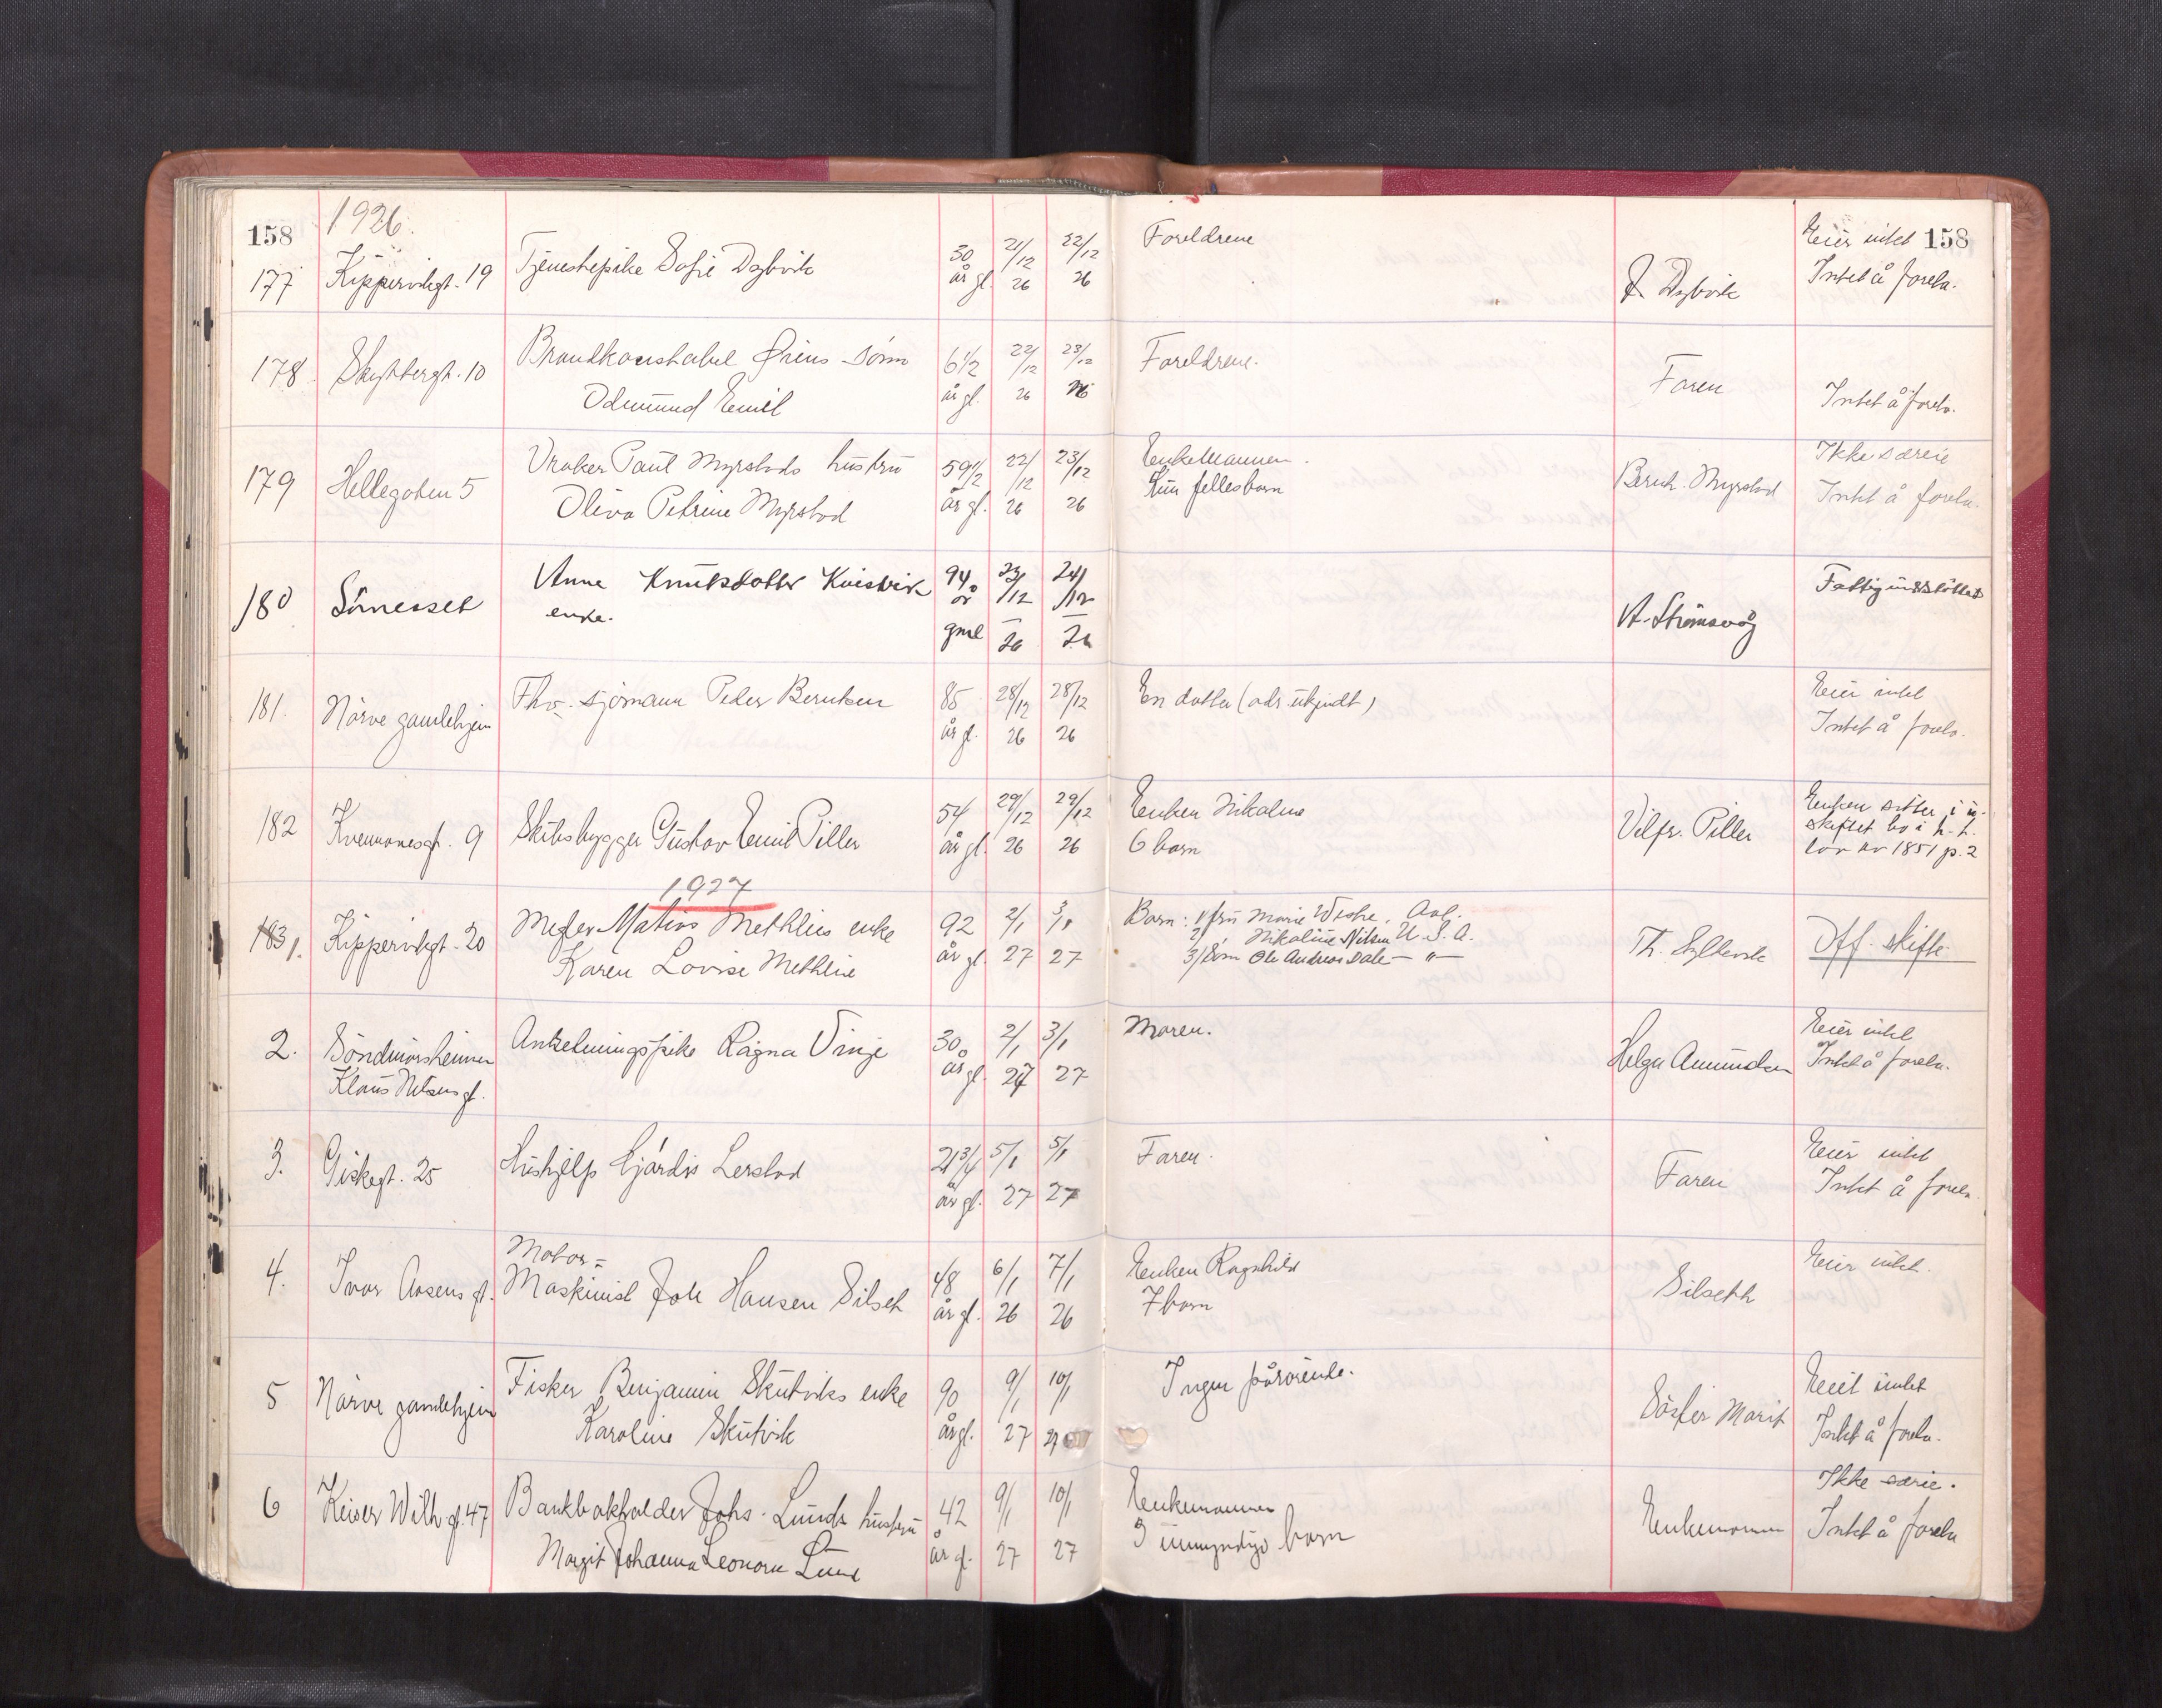 158 1926. 158
177 Kippervikgt. 19 Tjenestepike Sofie Dybvik 30 år gl. 21/12 26 22/12 26 Foreldrene Dybvik Eier intet
Intet å forela.
178 10 Brandkonstabel sönn 6 1/2 år gl. 22/12 26 23/12 26 Foreldrene. Faren Intet å forela.
Odmund Emil
179 Hellegaten 5 Vraker Paul Myrstads hustru 59 1/2 år gl. 22/12 26 23/12 26 Enkemannen. Bernh. Myrstad Ikke særeie
Oliva Petrine Myrstad Kun fellesbarn Intet å forela.
180 Sörnesset Anne Knutsdotter Kvistvik 94 år gml 23/12 26 24/12 26 A. Strömsvåg Fattigunderstöttet
enke.
181. Nörve gamlehjem Fhv. sjömann Peder Berntsen 85 år gl. 28/12 26 28/12 26 En datter (adr. ukjendt) Eier intet
Intet å forela.
182 gt. 9 Skibsbygger Gustav Emil Piller 54 år gl. 29/12 26 29/12 26 Enken Nikoline Vilfr. Piller Enken sitter i u-
6 barn skiftet bo i h. t.
lov av 1851 p. 2
1927
183 1. Kippervikgt. 20 Megler Matias Methlies enke 92 år gl. 2/1 27 3/1 27 Barn: 1/ fru Marie Aal. Th. Off. skifte
Karen Lovise Methlie 2/ Nikoline Nilsen U.S.A.
3/ Sönn Ole Andreas Dale — " —
2. Söndmörsheimen Anretningspike Ragna Vinje 30 år gl. 2/1 27 3/1 27 Moren. Helga Amundsen Eier intet
Klaus Nilsens gt. Intet å forela.
3. Giskegt. 25 Hushjelp Hjördis Lerstad 21 3/4 år gl. 5/1 27 5/1 27 Faren. Faren Eier intet
Intet å forela.
4. Ivar Aasens gt. Motor-
Maskinist Joh Hansen Silseth 48 år gl. 6/1 26 7/1 26 Enken Ragnhild Silseth Eier intet.
7 barn
5 Nörve gamlehjem Fisker Benjamin Skutviks enke 90 år gl. 9/1 27 10/1 27 Ingen pårörende. Söster Marit Eiet intet
Karoline Skutvik Intet å forela.
6 Keiser Wilh. gt. 47 Bankbokholder Johs. Lunds hustru 42 år gl. 9/1 27 10/1 27 Enkemannen Enkemannen Ikke særeie.
Margit Johanna Leonora Lund 3 umyndige barn Intet å forela